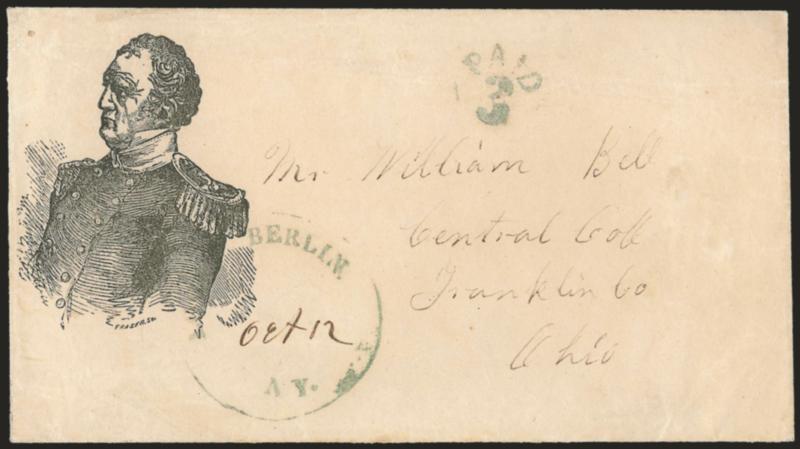 PAID
3
Mr William Bell
Central Coll
Franklin Co
Ohio
BERLIN
Oct 12
N.Y.